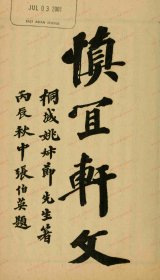 JUL 03 2001
慎宜軒文
桐城姚姊節先生著
丙辰秋中張伯英題